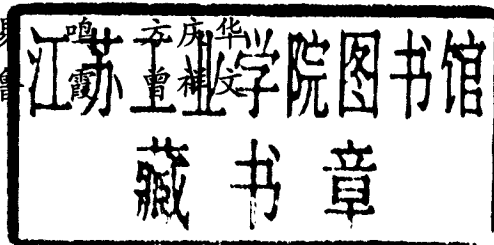 鸣 方 庆 华
霞 曾 祥 文
江苏工业学院图书馆
藏书章